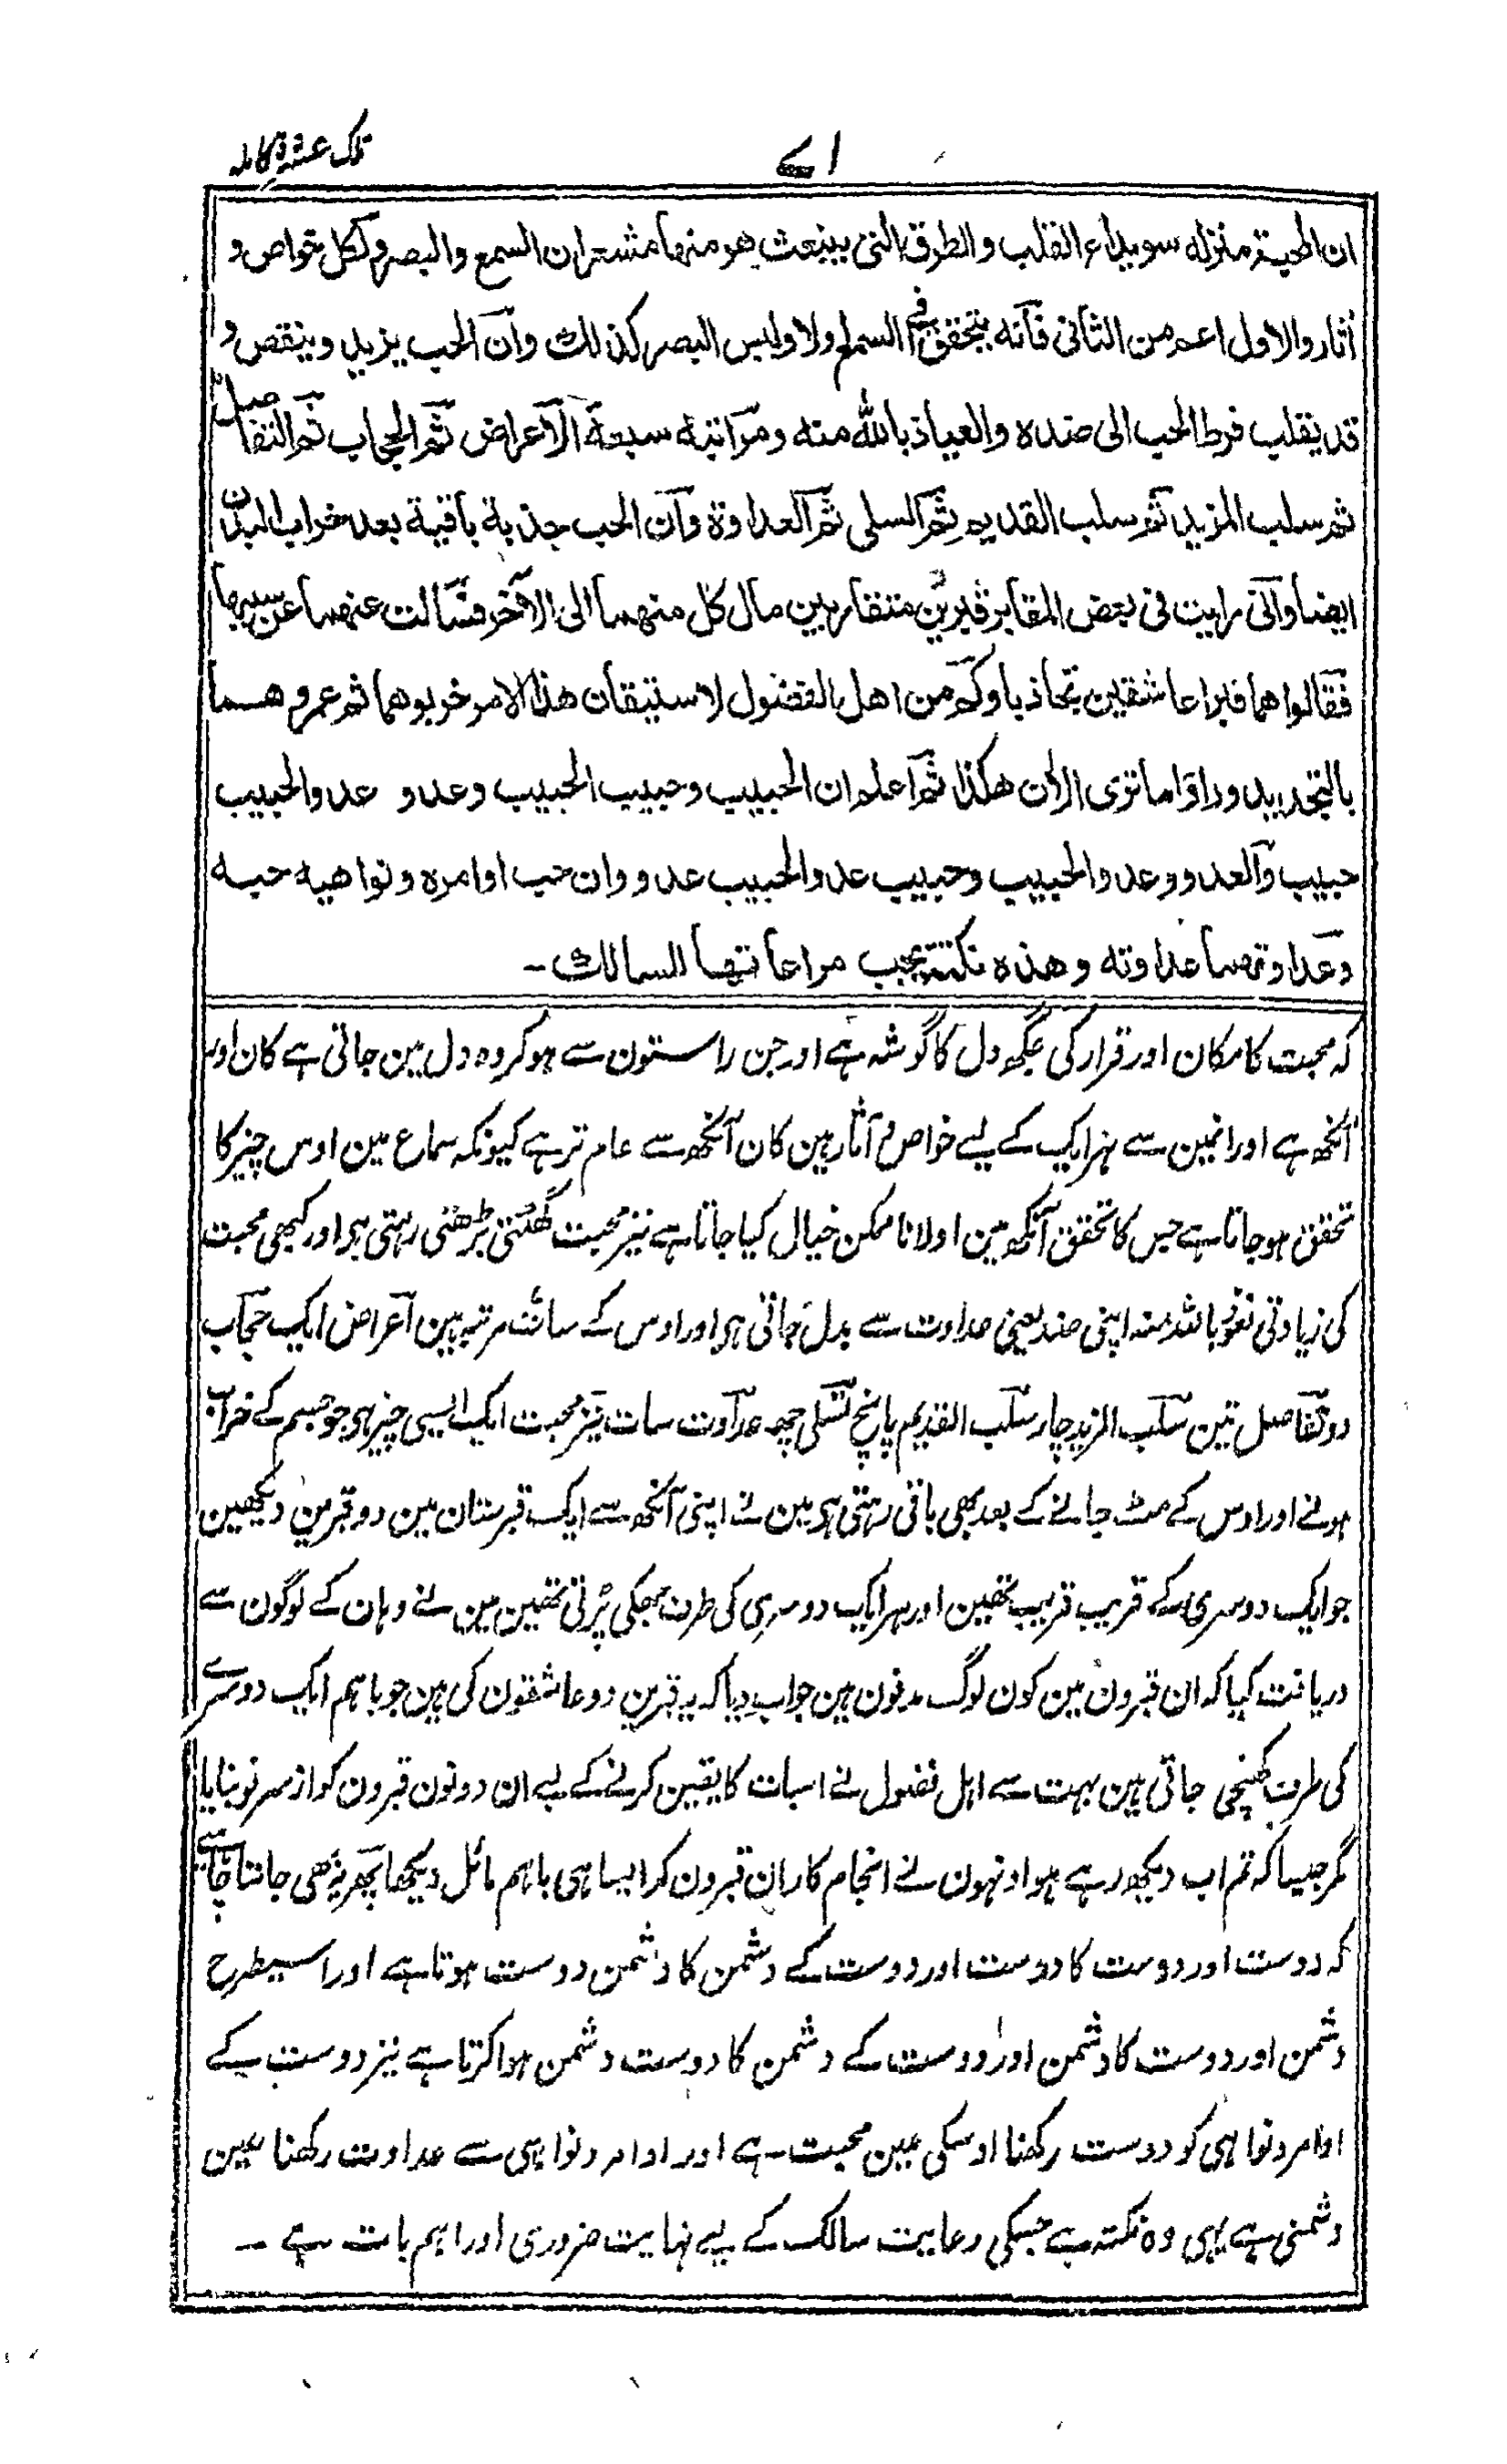 تلک عشرة کاملہ
۷۱
ان المحبة منزله سويداء القلب والطرق التى ينبعث هو منها مشعران السمع والبصر ولكل خواص و
أثار والاول اعم من الثانى فانه يتحقق فى السماع ولا وليس البصر كذلك وان الحب يزيد وينقص و
قد يقلب فرط الحب الى ضده والعياذ بالله منه ومراتبه سبعة الاعراض ثم الحجاب ثم التفاصل
ثم سلب المزيد ثم سلب القديم ثم السلى ثم العداوة وان الحب جذبة باقية بعد خراب البدن
ايضا وانى رايت فى بعض المقابر قبرين متقاربين مال كل منهما الى الاخر فسالت عنهما عن سببها
فقالوا هما قبرا عاشقين تجاذبا وكم من اهل الفضول لاستيقان هذا الامر خربوهما ثم عمروهما
بالتجديد وراوا ما ترى الان هكذا ثم اعلم ان الحبيب وحبيب الحبيب وعدو عدو الحبيب
حبيب والعدو وعدو الحبيب وحبيب عدو الحبيب عدو وان حب اوامره ونواهيه حبه
وعداوتهما عداوته وهذه نكتة يجب مراعاتها للسالك ـ
کہ محبت کا مکان اور قرار کی جگہ دل کا گوشہ ہے اور جن راستون سے ہو کر وہ دل مین جاتی ہے کان اور
آنکھ ہے اور انمین سے ہر ایک کے لیے خواص و آثار ہین کان آنکھ سے عام تر ہے کیونکہ سماع مین اوس چیز کا
تحقق ہو جاتا ہے جس کا تحقق آنکھ مین اولا ناممکن خیال کیا جاتا ہے نیز محبت گھٹتی بڑھتی رہتی ہی اور کبھی محبت
کی زیادتی نعوذ باللہ منہ اپنی ضد یعنی عداوت سے بدل جاتی ہی اور اوس کے سات مرتبہ ہین اعراض ایک حجاب
دو تفاصل تین سلب المزید چار سلب القدیم پانچ تسلی چھ عداوت سات نیز محبت ایک ایسی چیز ہی جو جسم کے خراب
ہونے اور اوس کے مٹ جانے کے بعد بھی باقی رہتی ہی مین نے اپنی آنکھ سے ایک قبرستان مین دو قبرین دیکھین
جو ایک دوسری کے قریب قریب تھین اور ہر ایک دوسری کی طرف جھکی پڑتی تھین مین نے وہان کے لوگون سے
دریافت کیا کہ ان قبرون مین کون لوگ مدفون ہین جواب دیا کہ یہ قبرین دو عاشقون کی ہین جو باہم ایک دوسرے
کی طرف کھنچی جاتی ہین بہت سے اہل فضول نے اسبات کا یقین کرنے کے لیے ان دونون قبرون کو از سر نو بنایا
مگر جیسا کہ تم اب دیکھ رہے ہو اونہون نے انجام کار ان قبرون کو ایسا ہی باہم مائل دیکھا پھر یہ بھی جاننا چاہیے
کہ دوست اور دوست کا دوست اور دوست کے دشمن کا دشمن دوست ہوتا ہے اور اسیطرح
دشمن اور دوست کا دشمن اور دوست کے دشمن کا دوست دشمن ہوا کرتا ہے نیز دوست کے
اوامر و نواہی کو دوست رکھنا اوسکی عین محبت ہے اور اوامر و نواہی سے عداوت رکھنا عین
دشمنی ہے یہی وہ نکتہ ہے جسکی رعایت سالک کے لیے نہایت ضروری اور اہم بات ہے ـ